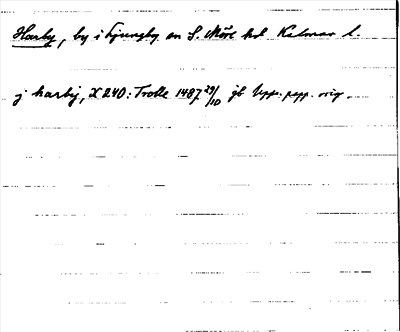 Harby, by i Ljungby sn S. Möre hd Kalmar l.
j harbij, X 240: Trolle 1487 29/10 jb Upps. papp. orig.